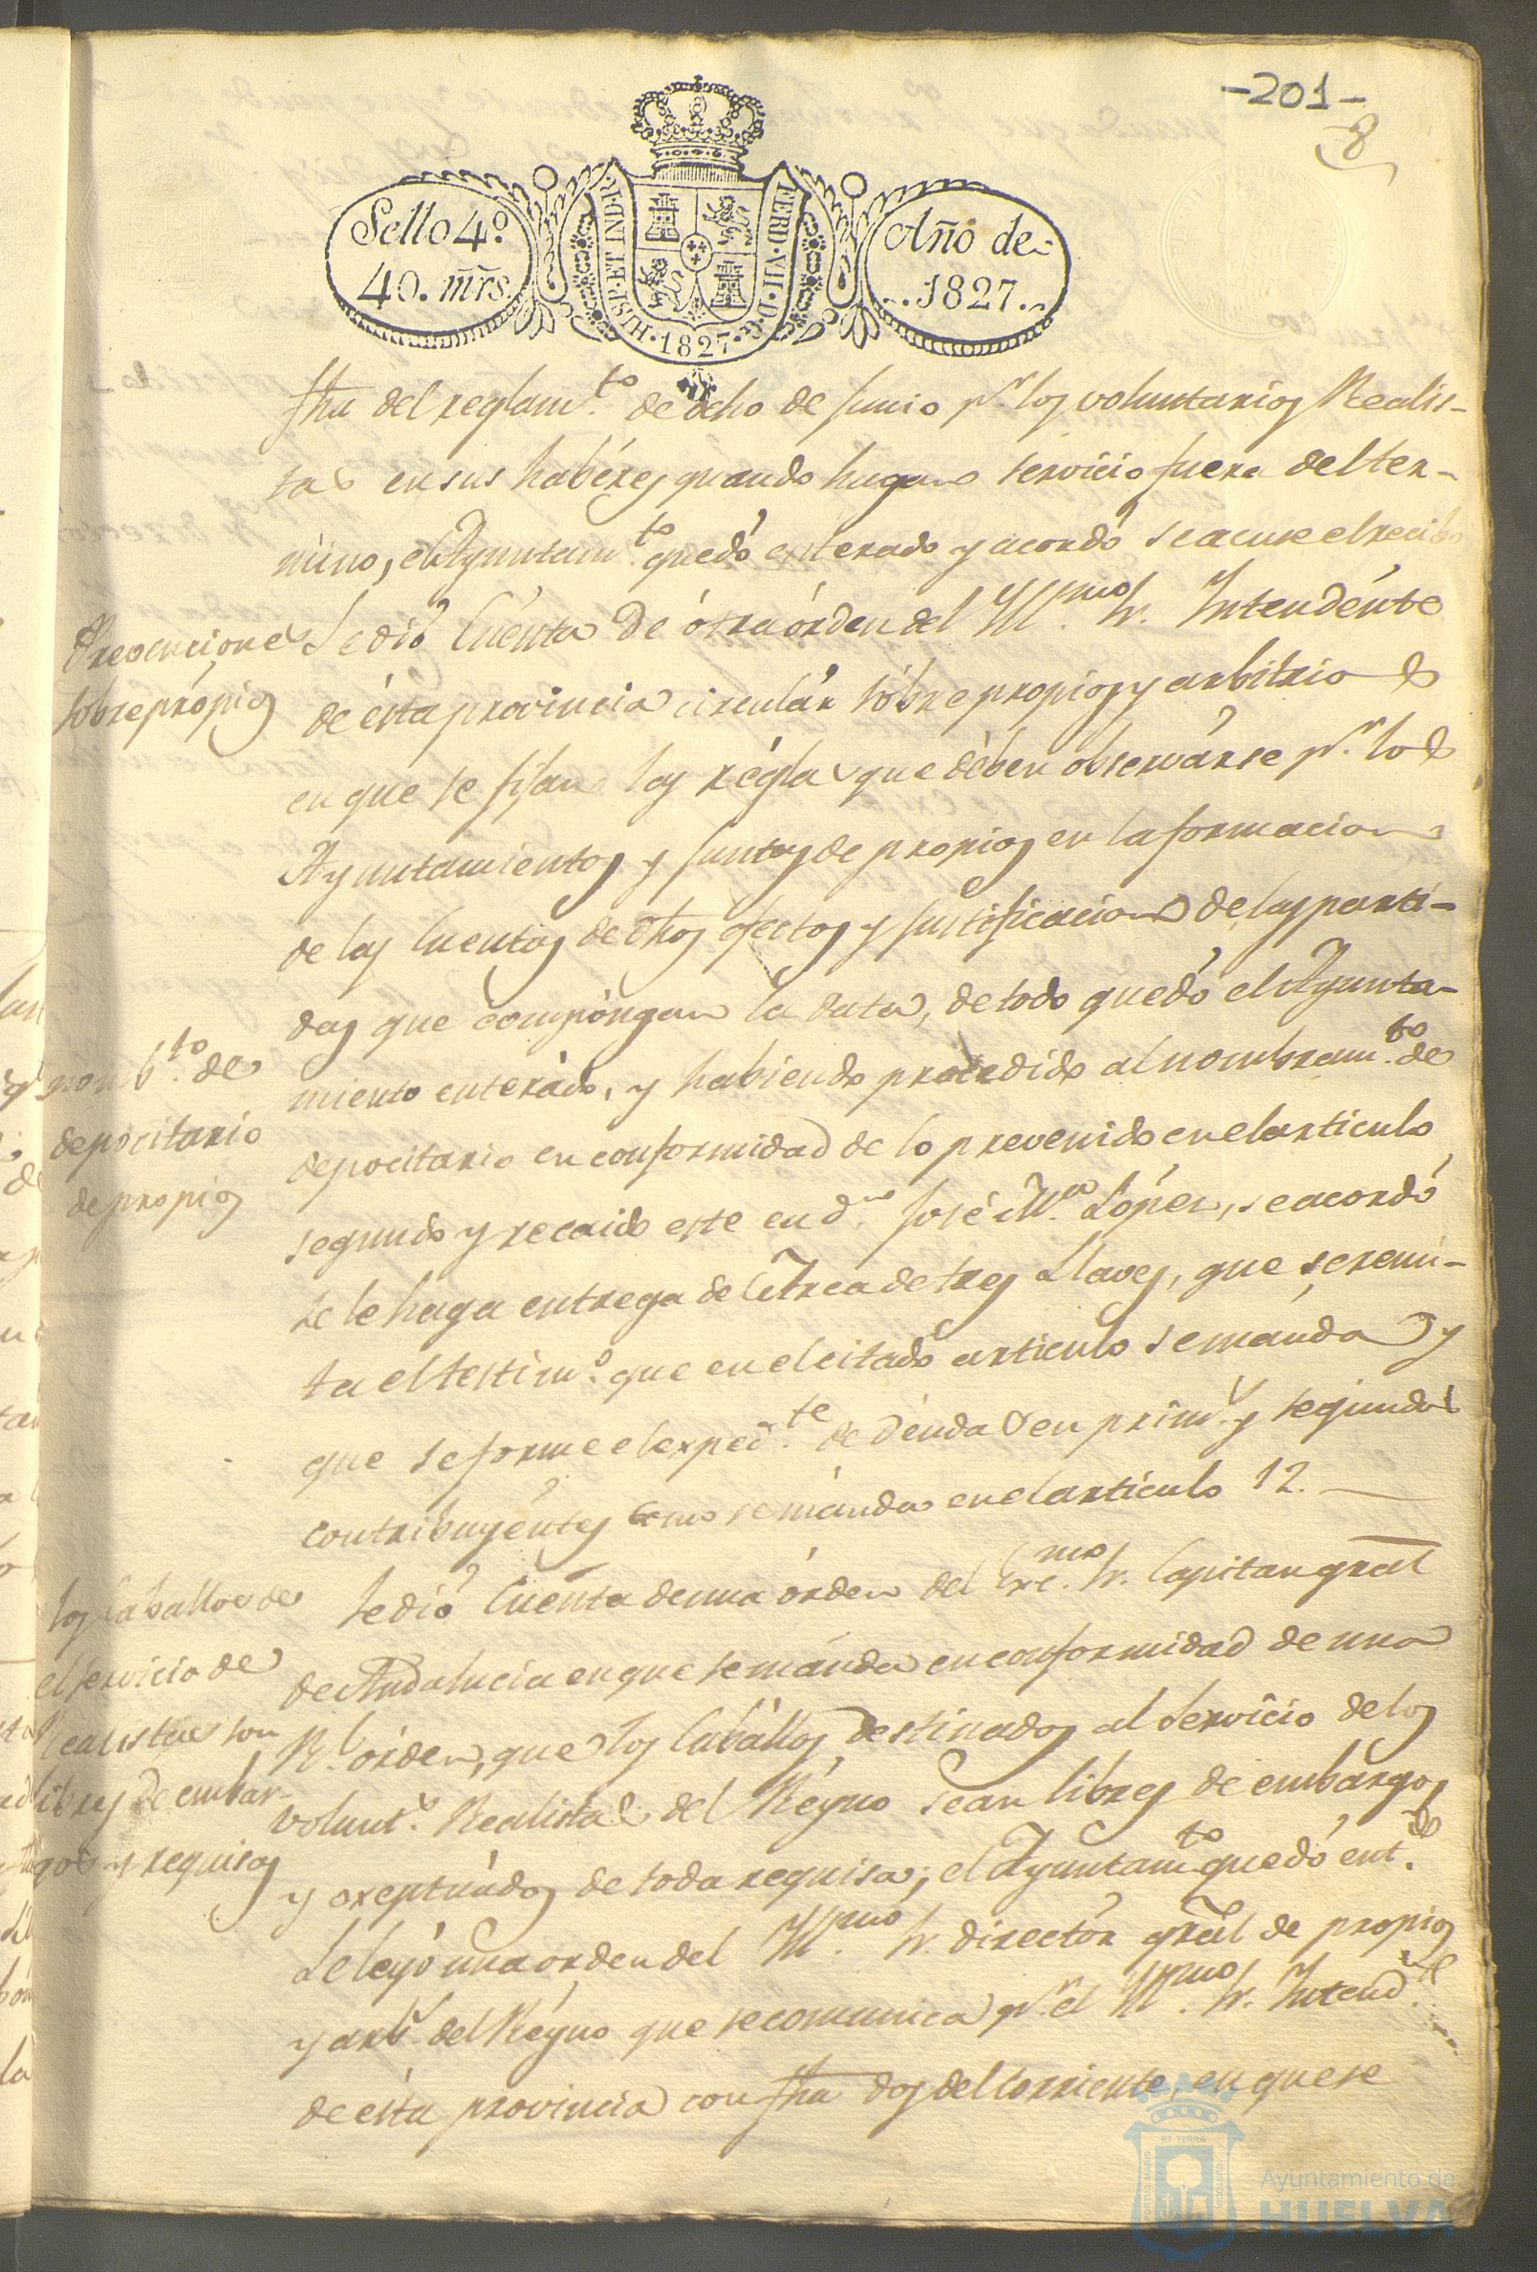 -201-
8
Sello 4º.
40. mrs.
HISP. ET IND. R.
FERD. VII. D. G.
.1827.
Año de
..1827..
fha del reglamto. de ocho de Junio pr. los voluntarios Realis-
tas en sus habéres quando hagan servicio fuera del ter-
mino, el Ayuntamto. quedó enterado y acordó se acuse el recibo
Prevenciones
sobre própios
Se dió Cuenta de ótra órden del Yllmo. Sr. Intendénte
de ésta provincia circulár sóbre propios y arbitrios
en que se fijan las réglas que dében observárse pr. los
Ayuntamientos y Juntas de propios en la formacion
de las Cuentas de dhos efectos y Justificacion de las parti-
das que compóngan la data, de todo quedó el Ayunta-
nombto. de
depocitario
de propios
miento enterádo, y habiendo procedido al nombramto. de
depocitario en conformidad de lo prevenido en el articulo
segundo y recaido este en dn. José Ma. López, se acordó
se le haga entrega del Arca de tres Llaves, que se remi-
ta el testimo. que en el citado articulo se mánda y
que se forme el expedte. de déudas en prims. y segundos
contribuyéntes como se mánda en el artículo 12.
los Caballos de
el servicio de
Realistas son
libres de embar-
gos y requisas
Se dió Cuenta de una órden del Excmo. Sr. Capitan gral
de Andalucía en que se mánda en conformidad de una
Rl. órden, que los Cabállos destinados al Servicio de los
volunts. Realistas del Réyno sean libres de embárgos
y exeptuádos de toda requisa; el Ayuntamto. quedó entdo.
Se leyó una orden del Yllmo. Sr. directór gral de propios
y arbs. del Réyno que se comunica pr. el Yllmo. Sr. Intendnte.
de ésta provincia con fha dos del corriente, en que se
Ayuntamiento de
HUELVA